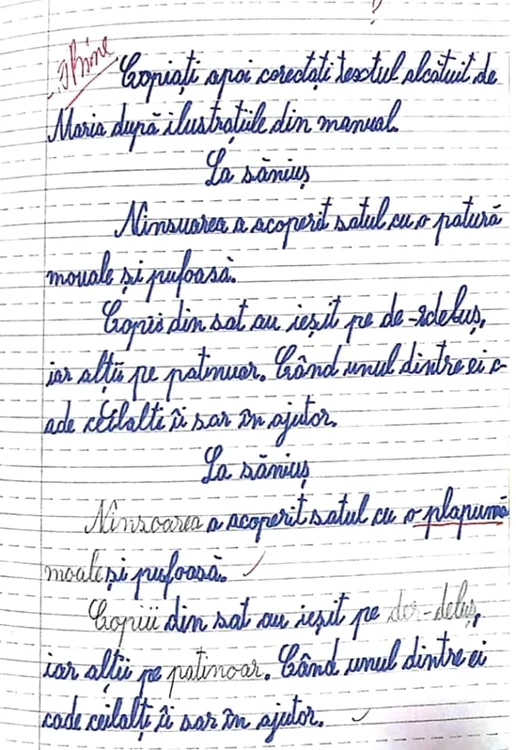 Bine
Copiați apoi corectați textul alcătuit de
Maria după ilustrațiile din manual.
La săniuș
Ninsuarea a acoperit satul cu o patură
mouale și pufoasă.
Copiii din sat au ieșit pe de-rdeluș,
iar alții pe patinuar. Când unul dintre ei c-
ade ceilalti îi sar în ajutor.
La săniuș
Ninsoarea a acoperit satul cu o plapumă
moale și pufoasă.
Copiii din sat au ieșit pe der-deluș,
iar alții pe patinoar. Când unul dintre ei
cade ceilalți îi sar în ajutor.